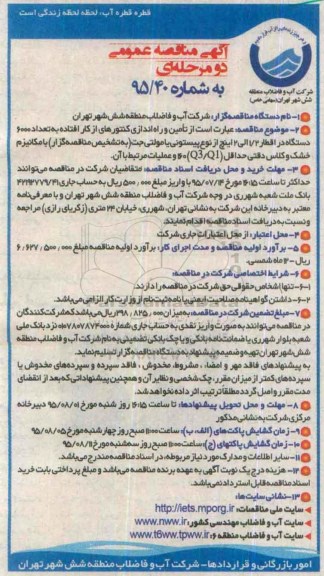 قطره قطره آب، لحظه لحظه زندگی است
آگهی مناقصه عمومی
دو مرحله‌ای
به شماره ۹۵/۴۰
شرکت آب و فاضلاب منطقه
شش شهر تهران (سهامی خاص)
۱- نام دستگاه مناقصه‌گزار: شرکت آب و فاضلاب منطقه شش شهر تهران
۲- موضوع مناقصه: عبارت است از تأمین و راه‌اندازی کنتورهای از کار افتاده به تعداد ۶۰۰۰
دستگاه در اقطار ۱/۲ الی ۲ اینچ از نوع پیستونی یا مولتی جت (به تشخیص مناقصه‌گزار) با مکانیزم
خشک و کلاس دقتی حداقل (Q3/Q1) ۴۰ و عملیات مرتبط با آن
۳- مهلت خرید و محل دریافت اسناد مناقصه: متقاضیان شرکت در مناقصه می‌توانند
حداکثر تا ساعت ۱۶:۱۵ مورخ ۹۵/۰۷/۱۴ با واریز مبلغ ۵۰۰,۰۰۰ ریال به حساب جاری
بانک ملت شعبه شهرری در وجه شرکت آب و فاضلاب منطقه شش شهر تهران و با معرفی‌نامه
معتبر به دبیرخانه این شرکت به نشانی تهران، شهرری، خیابان ۲۴ متری (زکریای رازی) مراجعه
و نسبت به دریافت اسناد مناقصه اقدام نمایند.
۴- محل اعتبار: از محل اعتبارات جاری شرکت
۵- برآورد اولیه مناقصه و مدت اجرای کار: برآورد اولیه مناقصه مبلغ ۶,۶۲۷,۵۰۰,۰۰۰
ریال - ۱۲ ماه شمسی.
۶- شرایط اختصاصی شرکت در مناقصه:
۶-۱- تنها اشخاص حقوقی حق شرکت در مناقصه را دارند.
۶-۲- داشتن گواهینامه صلاحیت ایمنی یا نامه ثبت نام از وزارت کار الزامی می‌باشد.
۷- مبلغ تضمین شرکت در مناقصه: به میزان ۳۹۸,۸۲۵,۰۰۰ ریال می‌باشد که شرکت‌کنندگان
در مناقصه می‌توانند به صورت واریز نقدی به حساب جاری شماره ۰۱۰۷۸۰۷۸۷۴۰۰۰ نزد بانک ملی
شعبه بلوار شهرری یا ضمانت‌نامه بانکی و یا چک بانکی تضمینی به نام شرکت آب و فاضلاب منطقه
شش شهر تهران تهیه و ضمیمه پیشنهاد به دستگاه مناقصه‌گزار تسلیم نماید.
به پیشنهادهای فاقد مهر و امضا، مشروط، مخدوش، فاقد سپرده و سپرده‌های مخدوش یا
سپرده‌های کمتر از میزان مقرر، چک شخصی و نظایر آن و همچنین پیشنهاداتی که بعد از انقضای
مدت مقرر واصل گردد مطلقاً ترتیب اثر داده نخواهد شد.
۸- مهلت و محل تحویل پیشنهادها: تا ساعت ۱۶:۱۵ روز شنبه مورخ ۹۵/۰۸/۰۱ دبیرخانه
مرکزی شرکت به نشانی مذکور
۹- زمان گشایش پاکت‌های (الف، ب): ساعت ۱۱:۰۰ صبح روز چهارشنبه مورخ ۹۵/۰۸/۰۵
۱۰- زمان گشایش پاکت‌های (ج): ساعت ۱۱:۰۰ صبح روز سه‌شنبه مورخ ۹۵/۰۸/۱۱
۱۱- سایر اطلاعات و مدارک مورد نیاز مربوطه، در اسناد مناقصه مندرج می‌باشد.
۱۲- هزینه درج یک نوبت آگهی به عهده برنده مناقصه می‌باشد و مبلغ پرداختی بابت خرید
اسناد مناقصه قابل استرداد نمی‌باشد.
۱۳- نشانی سایت‌ها:
سایت ملی مناقصات: http://iets.mporg.ir
سایت آب و فاضلاب مهندسی کشور: www.nww.ir
سایت آب و فاضلاب منطقه ۶: www.t6ww.tpww.ir
امور بازرگانی و قراردادها - شرکت آب و فاضلاب منطقه شش شهر تهران